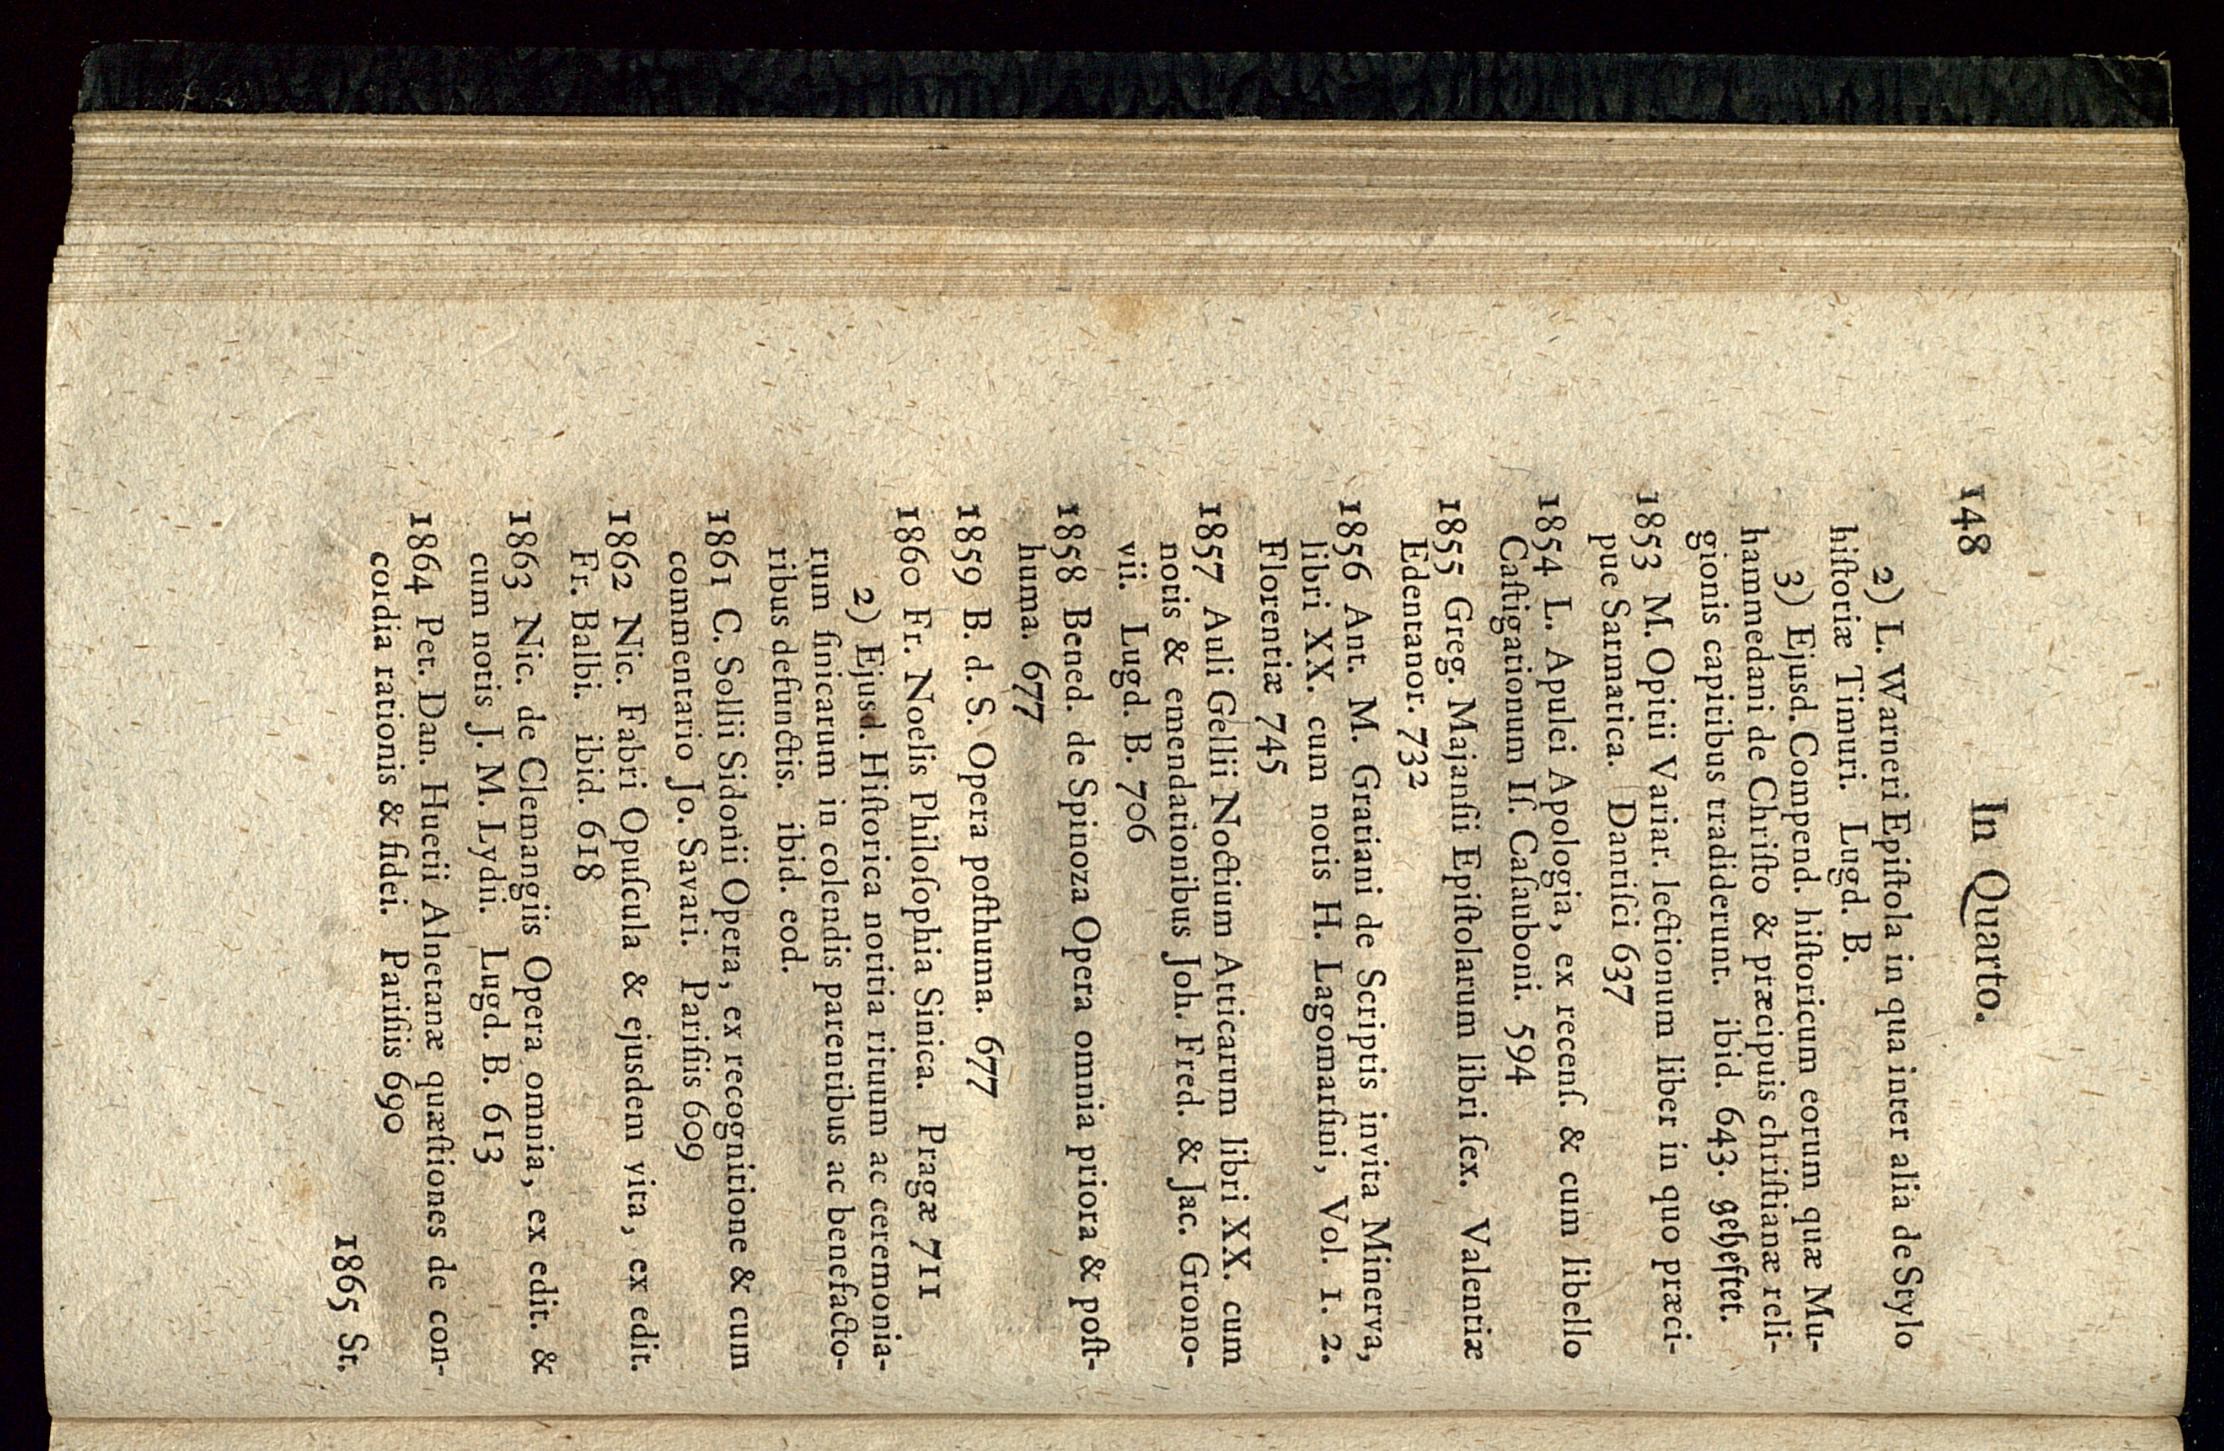 148 In Quarto.
2) L. Warneri Epiſtola in qua inter alia de Stylo
hiſtoriæ Timuri. Lugd. B.
3) Ejusd. Compend. hiſtoricum eorum quæ Mu-
hammedani de Chriſto & præcipuis chriſtianæ reli-
gionis capitibus tradiderunt. ibid. 643. geheftet.
1853 M. Opitii Variar. lectionum liber in quo præci-
pue Sarmatica. Dantiſci 637
1854 L. Apulei Apologia, ex recenſ. & cum libello
Caſtigationum Iſ. Caſauboni. 594
1855 Greg. Majanſii Epiſtolarum libri ſex. Valentiæ
Edentanor. 732
1856 Ant. M. Gratiani de Scriptis invita Minerva,
libri XX. cum notis H. Lagomarſini, Vol. 1. 2.
Florentiæ 745
1857 Auli Gellii Noctium Atticarum libri XX. cum
notis & emendationibus Joh. Fred. & Jac. Grono-
vii. Lugd. B. 706
1858 Bened. de Spinoza Opera omnia priora & poſt-
huma. 677
1859 B. d. S. Opera poſthuma. 677
1860 Fr. Noelis Philoſophia Sinica. Pragæ 711
2) Ejusd. Hiſtorica notitia rituum ac ceremonia-
rum ſinicarum in colendis parentibus ac benefacto-
ribus defunctis. ibid. eod.
1861 C. Sollii Sidonii Opera, ex recognitione & cum
commentario Jo. Savari. Pariſiis 609
1862 Nic. Fabri Opuſcula & ejusdem vita, ex edit.
Fr. Balbi. ibid. 618
1863 Nic. de Clemangiis Opera omnia, ex edit. &
cum notis J. M. Lydii. Lugd. B. 613
1864 Pet. Dan. Huetii Alnetanæ quæſtiones de con-
cordia rationis & fidei. Pariſiis 690
1865 St.